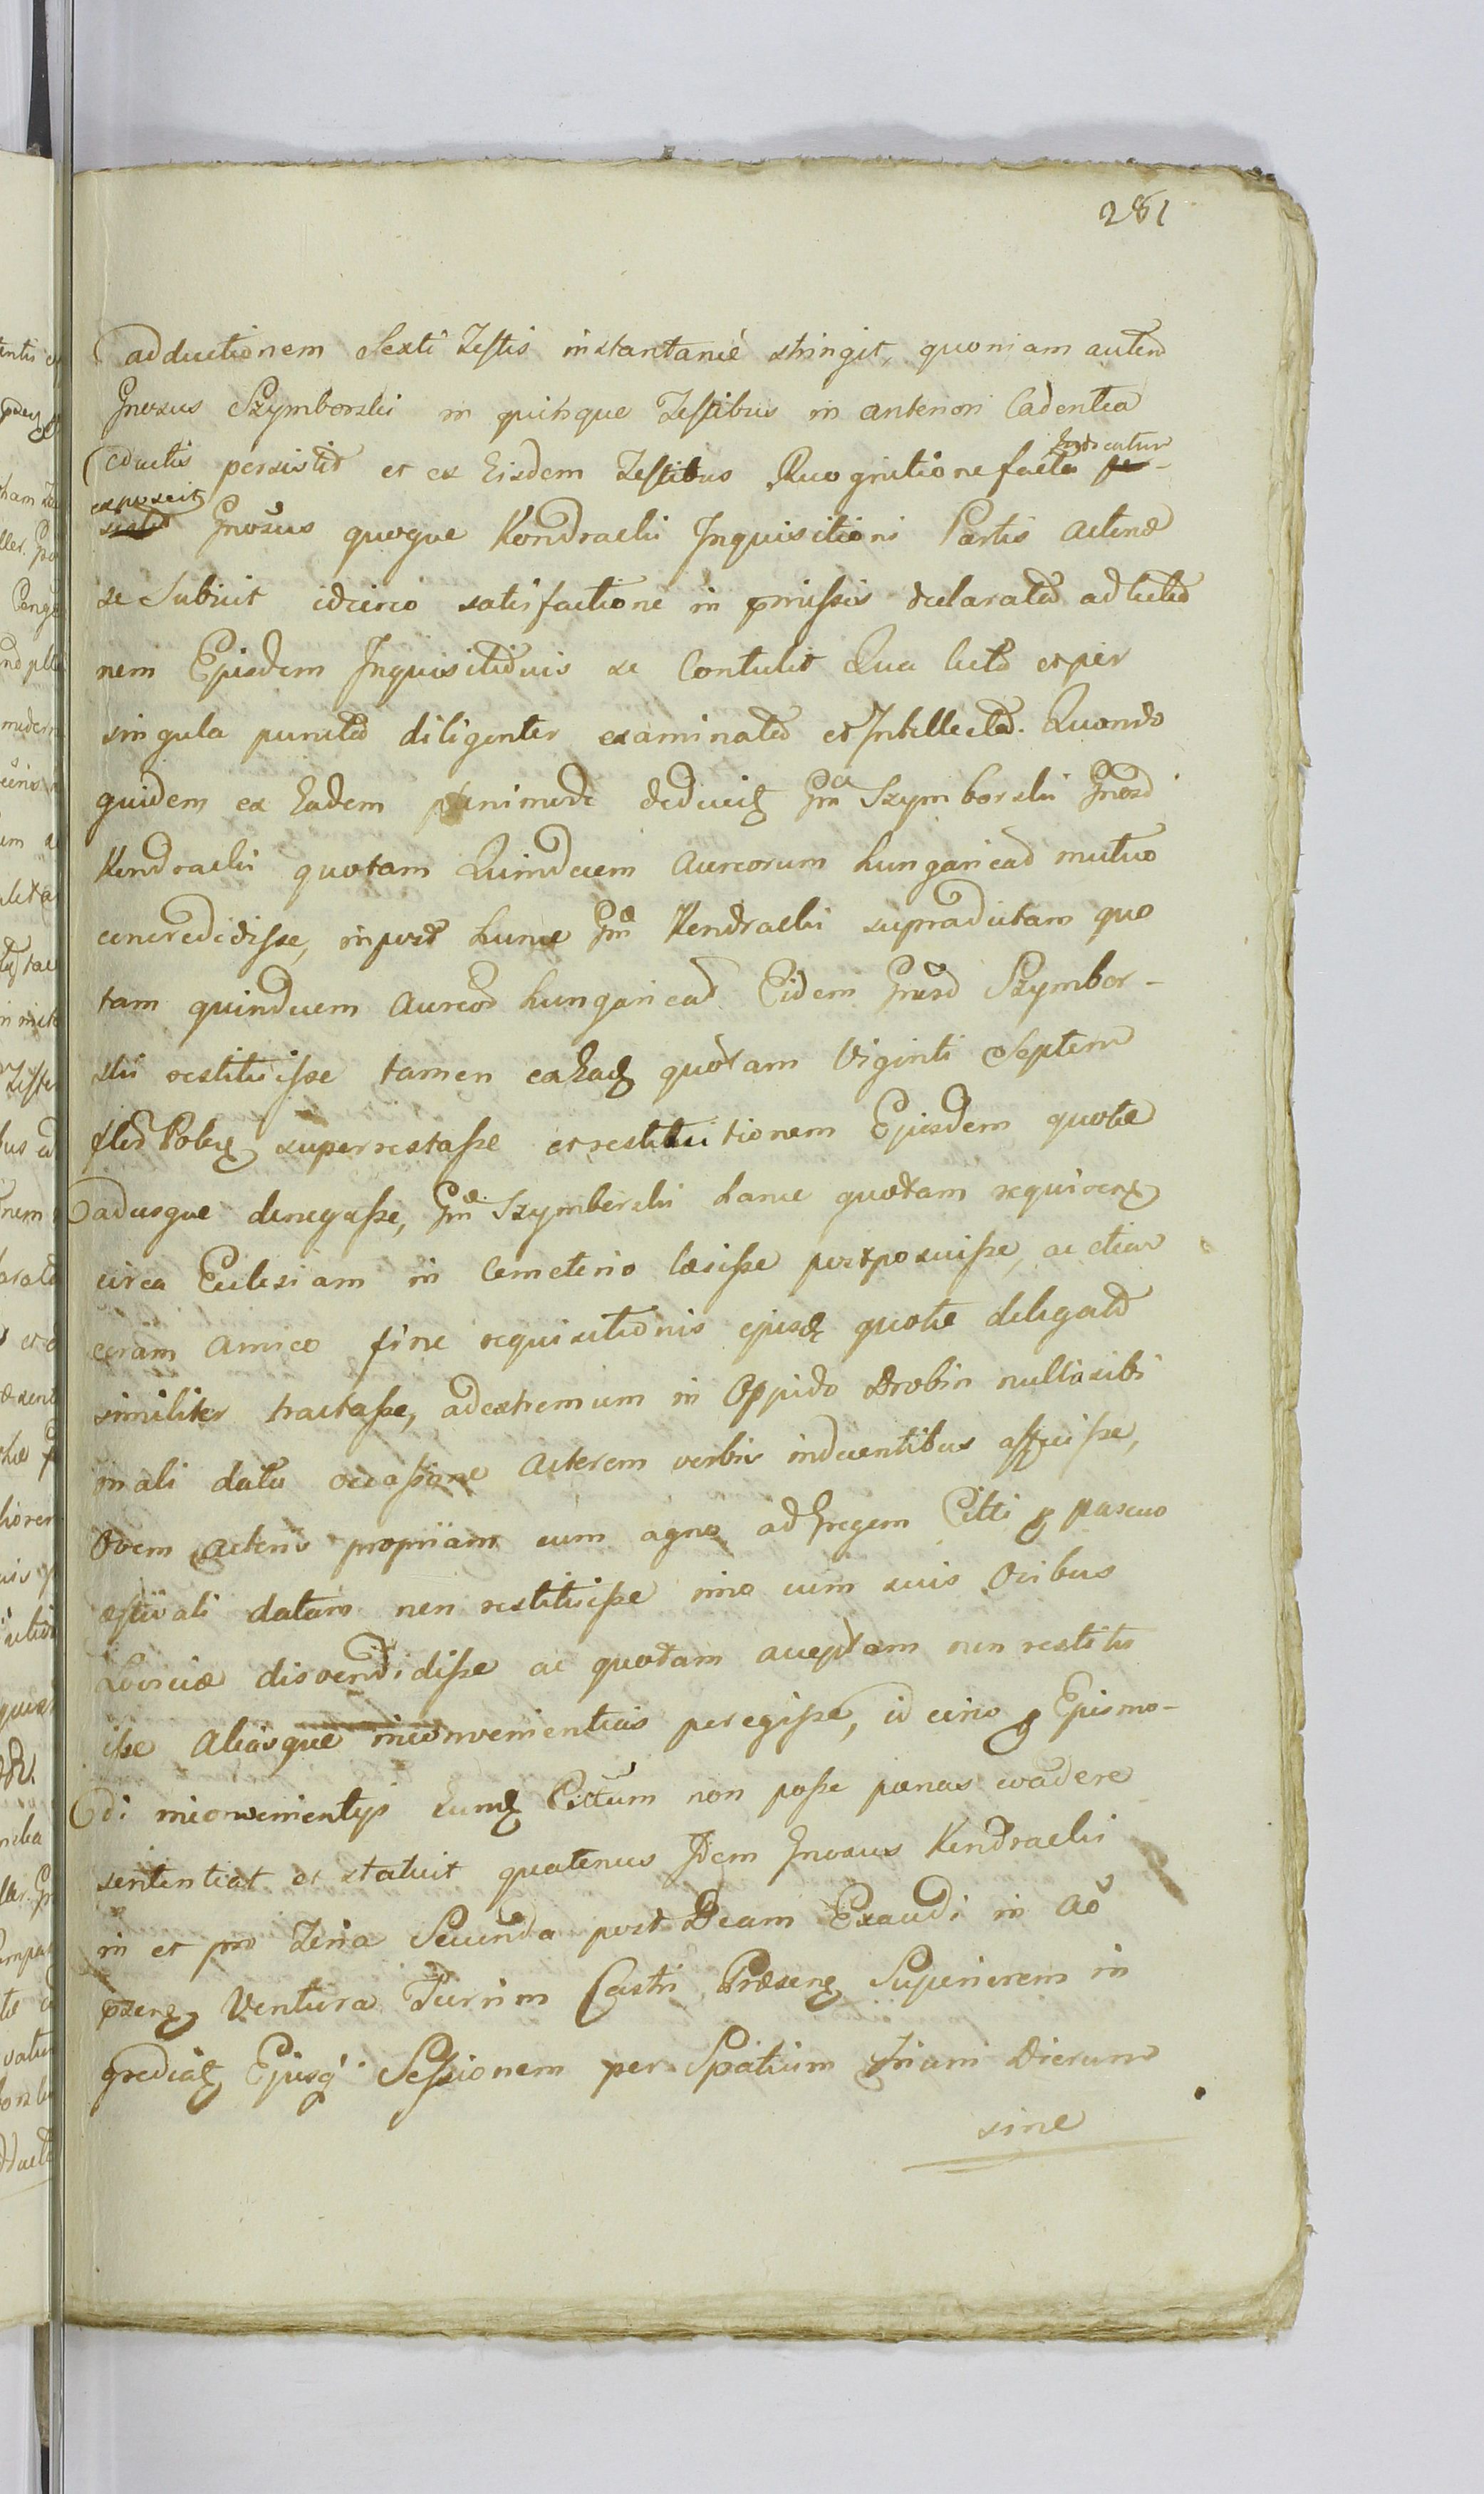 281
adductionem Sexti Testis instantanie stringit, quoniam autem
Gnosus Szymborski in quinque Testibus in anteriori Cadentia
eductis persistit et ex Eisdem Testibus Recognitione facta Judicatur
exposcit Gnosus quoque Kondracki Inquisitioni Partis Actoreae
se Subiicit idcirco satisfactione in pmissis declarata ad lectio
nem Ejusdem Inquisitionis se Contulit Qua lecta et per
singula puncta diligenter examinata et Intellecta. Quando
quidem ex Eadem deducit Gm Szymborski Gnoso
Kondracki quotam Quindecem Aureorum hungaricad mutuo
concredidisse, in post hunc Gm Kondracki supradictam quo
tam quindecem Aureor hungaricad Eidem Gnoso Szymbor-
ski restituisse tamen ex Ead quotam Viginti Septem
flor Polon superrestasse et restitutionem Ejusdem quotae
adusque denegasse, Gm Szymborski hanc quotam requiren
circa Ecclesiam in Cemeterio laesisse postposuisse, ac etiam
coram Amico fine requisitionis ejusd quotae delegato
similiter tractasse, ad extremum in Oppido Drobin nulla sibi
mali data occasione Actorem verbis indecentibus affecisse,
Ovem Actoris propriam cum agno ad Gregem Citti p pascuo
aestivali datam non restituisse imo cum suis Ovibus
disvendidisse ac quotam acceptam non restitu
isse Aliasque inconvenientias peregisse, id circo p Ejusmo-
di inconvenientys Eund Cittum non posse paenas evadere
sententiat et statuit quatenus Idem Gnosus Kondracki
in et pro Feria Secunda post Dcam Exaudi in Ao
psen Ventura Turrim Castri Praesen Superiorem in
grediat Ejusq Sessionem per Spatium Trium Dierum
sine